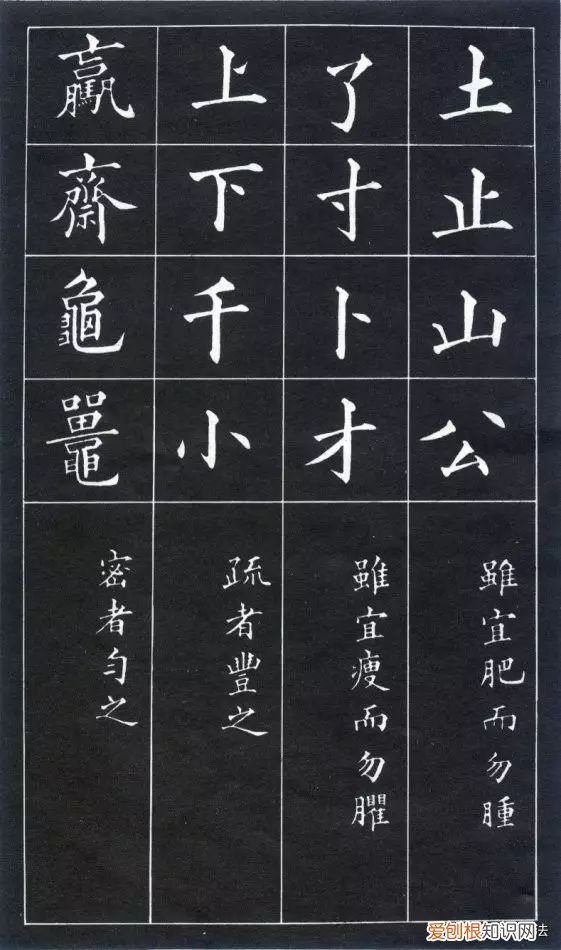 土止山公
雖宜肥而勿腫
了寸卜才
雖宜瘦而勿臞
上下千小
疏者豐之
驘齋龜鼉
密者勻之
爱刨根知识网法